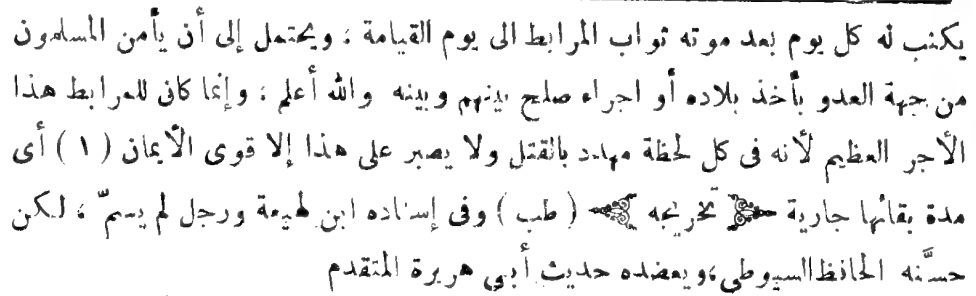 يكتب له كل يوم بعد موته ثواب المرابط الى يوم القيامة ، ويحتمل إلى أن يأمن المسلمون
من جهة العدو بأخذ بلاده أو اجراء صلح بينهم وبينه والله أعلم ، وإنما كان للمرابط هذا
الأجر العظيم لأنه فى كل لحظة مهدد بالقتل ولا يصبر على هذا إلا قوى الأيمان ( ١ ) أى
مدة بقائها جارية ﴿ تخريجه ﴾ ( طب ) وفى إسناده ابن لهيعة ورجل لم يسمّ ، لكن
حسَّنه الحافظ السيوطى ، ويعضده حديث أبي هريرة المتقدم